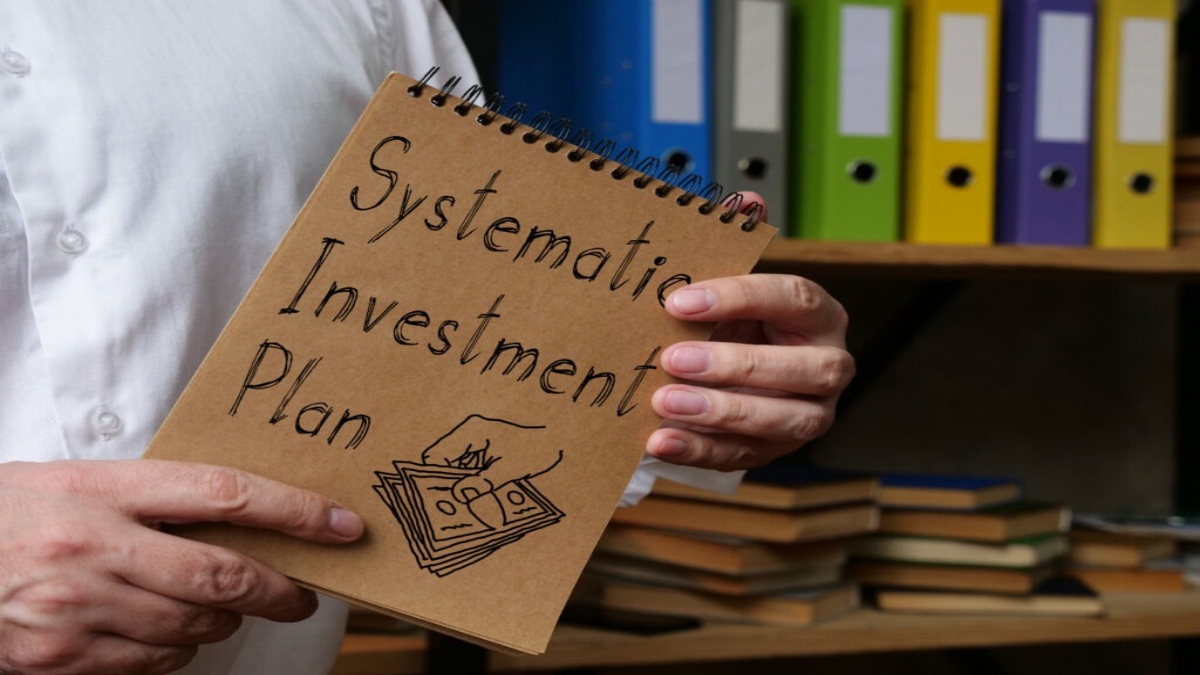 Systematic
Investment
Plan